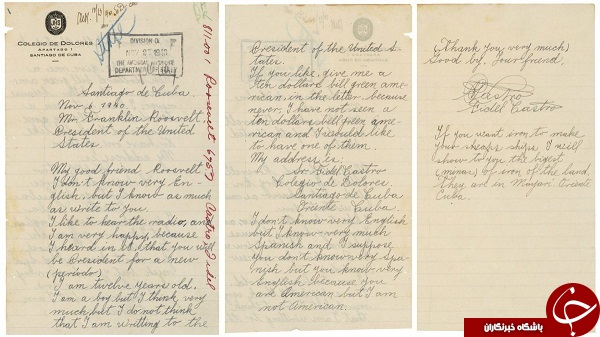 COLEGIO DE DOLORES
APARTADO 1
SANTIAGO DE CUBA
DIVISION OF
THE AMERICAN REPUBLICS
DEPARTMENT OF STATE
Santiago de Cuba
Nov 6 1940
Mr Franklin Roosvelt
President of the United
States.
My good friend Roosvelt
I don't know very En-
glish, but I know as much
as write to you.
I like to hear the radio, and
I am very happy, because
I heard in it, that you will
be President for a new
(periodo)
I am twelve years old.
I am a boy but I think very
much but I do not think
that I am writting to the
President of the United S-
tates.
If you like, give me a
ten dollars bill green ame-
rican, in the letter, because
never, I have not seen a
ten dollars bill green ame-
rican and I would like
to have one of them.
My address is:
Sr Fidel Castro
Colegio de Dolores.
Santiago de Cuba
Oriente Cuba.
I don't know very English
but I know very much
Spanish and I suppose
you don't know very Spa-
nish but you know very
English because you
are American but I am
not American.
(Thank you very much)
Good by. Your friend,
Castro
Fidel Castro
If you want iron to make
your sheaps ships I will
show to you the bigest
(minas) of iron of the land.
They are in Mayari Oriente
Cuba.
باشگاه خبرنگاران